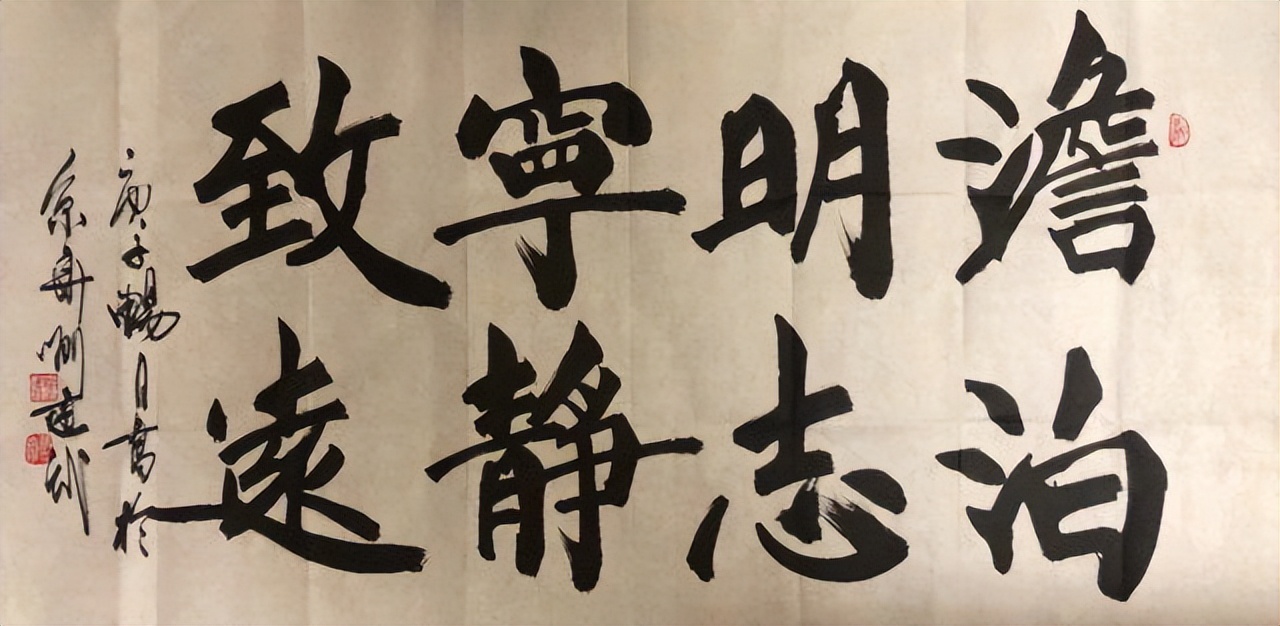 澹泊
明志
寧靜
致遠
庚子暢月書於
京舟